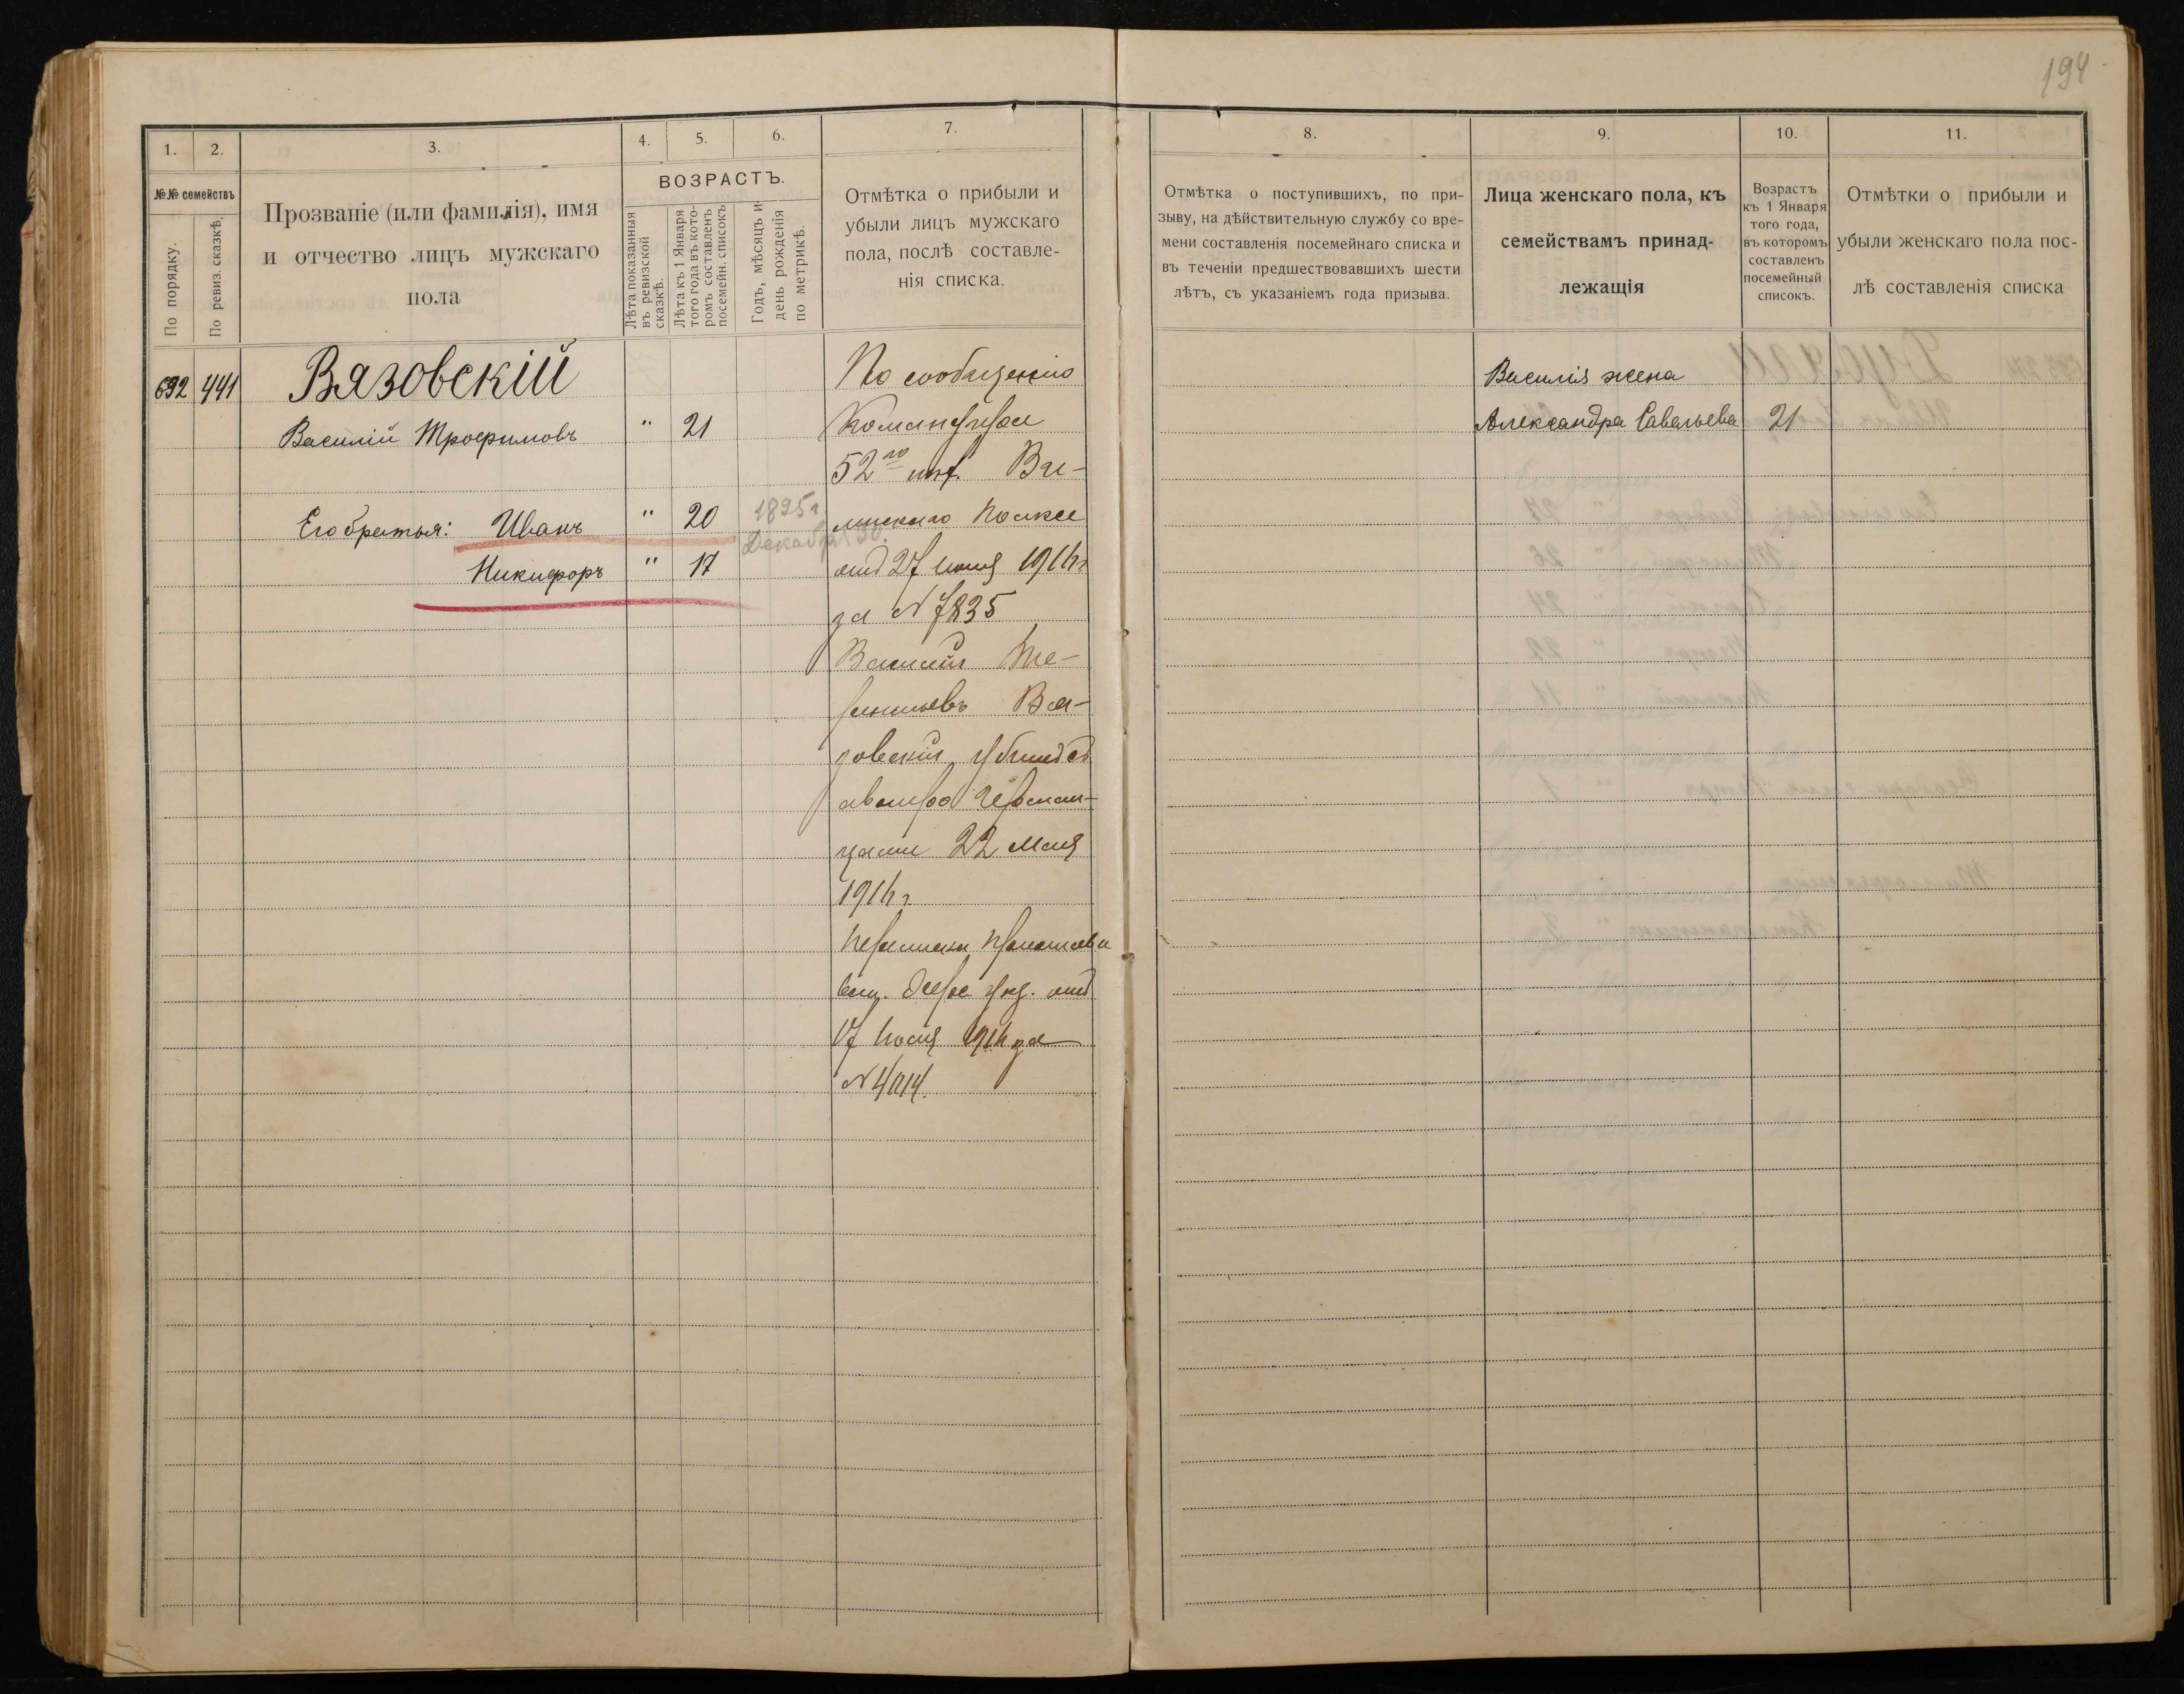 194
1.
2.
3.
4.
5.
6.
7.
№№ семействъ
По порядку.
По ревиз. сказкѣ.
Прозваніе (или фамилія), имя
и отчество лицъ мужскаго
пола
ВОЗРАСТЪ.
Лѣта показанныя
въ ревизской
сказкѣ.
Лѣта къ 1 Января
того года въ кото-
ромъ составленъ
посемейн. списокъ.
Годъ, мѣсяцъ и
день рожденія
по метрикѣ.
Отмѣтка о прибыли и
убыли лицъ мужскаго
пола, послѣ составле-
нія списка.
692 441 Вязовскій
Василій Трофимовъ " 21
Его братья: Иванъ " 20 1895 г
Декабря 30.
Никифоръ " 17
По сообщенію
Командира
52го пѣх. Ви-
ленскаго полка
отъ 27 1916 г
за № 7835
Василій
Вя-
зовскій, убитъ въ
22 Мая
1916 г
отъ
17 1916 за
№
8.
9.
10.
11.
Отмѣтка о поступившихъ, по при-
зыву, на дѣйствительную службу со вре-
мени составленія посемейнаго списка и
въ теченіи предшествовавшихъ шести
лѣтъ, съ указаніемъ года призыва.
Лица женскаго пола, къ
семействамъ принад-
лежащія
Возрастъ
къ 1 Января
того года,
въ которомъ
составленъ
посемейный
списокъ.
Отмѣтки о прибыли и
убыли женскаго пола пос-
лѣ составленія списка
Василія жена
Александра Савельева 21